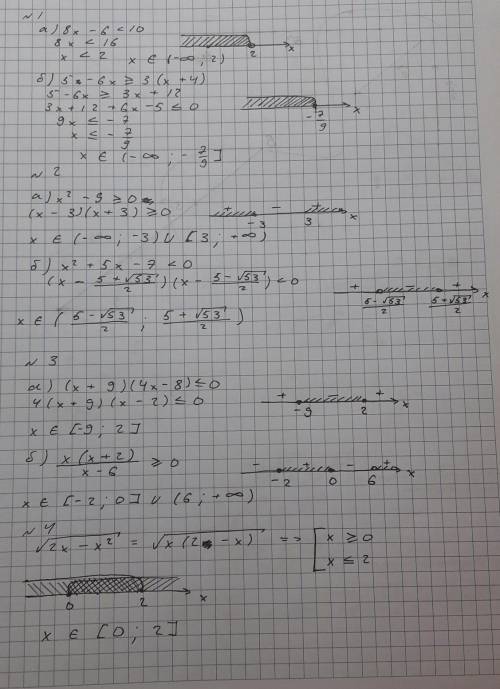 №1
а) 8x - 6 < 10
8x < 16
x < 2   x ∈ (-∞; 2)
2 x
б) 5 - 6x ≥ 3(x + 4)
5 - 6x ≥ 3x + 12
3x + 12 + 6x - 5 ≤ 0
9x ≤ -7
x ≤ -7/9
-7/9 x
x ∈ (-∞; -7/9]
№2
а) x² - 9 ≥ 0
(x - 3)(x + 3) ≥ 0
+ - + -3 3 x
x ∈ (-∞; -3) ∪ [3; +∞)
б) x² + 5x - 7 < 0
(x - (5+√53)/2)(x - (5-√53)/2) < 0
+ - + (5-√53)/2 (5+√53)/2 x
x ∈ ((5-√53)/2; (5+√53)/2)
№3
а) (x + 9)(4x - 8) ≤ 0
4(x + 9)(x - 2) ≤ 0
+ - + -9 2 x
x ∈ [-9; 2]
б) x(x+2)/(x-6) ≥ 0
- + - + -2 0 6 x
x ∈ [-2; 0] ∪ (6; +∞)
№4
√(2x - x²) = √(x(2 - x)) => [x ≥ 0
x ≤ 2
0 2 x
x ∈ [0; 2]